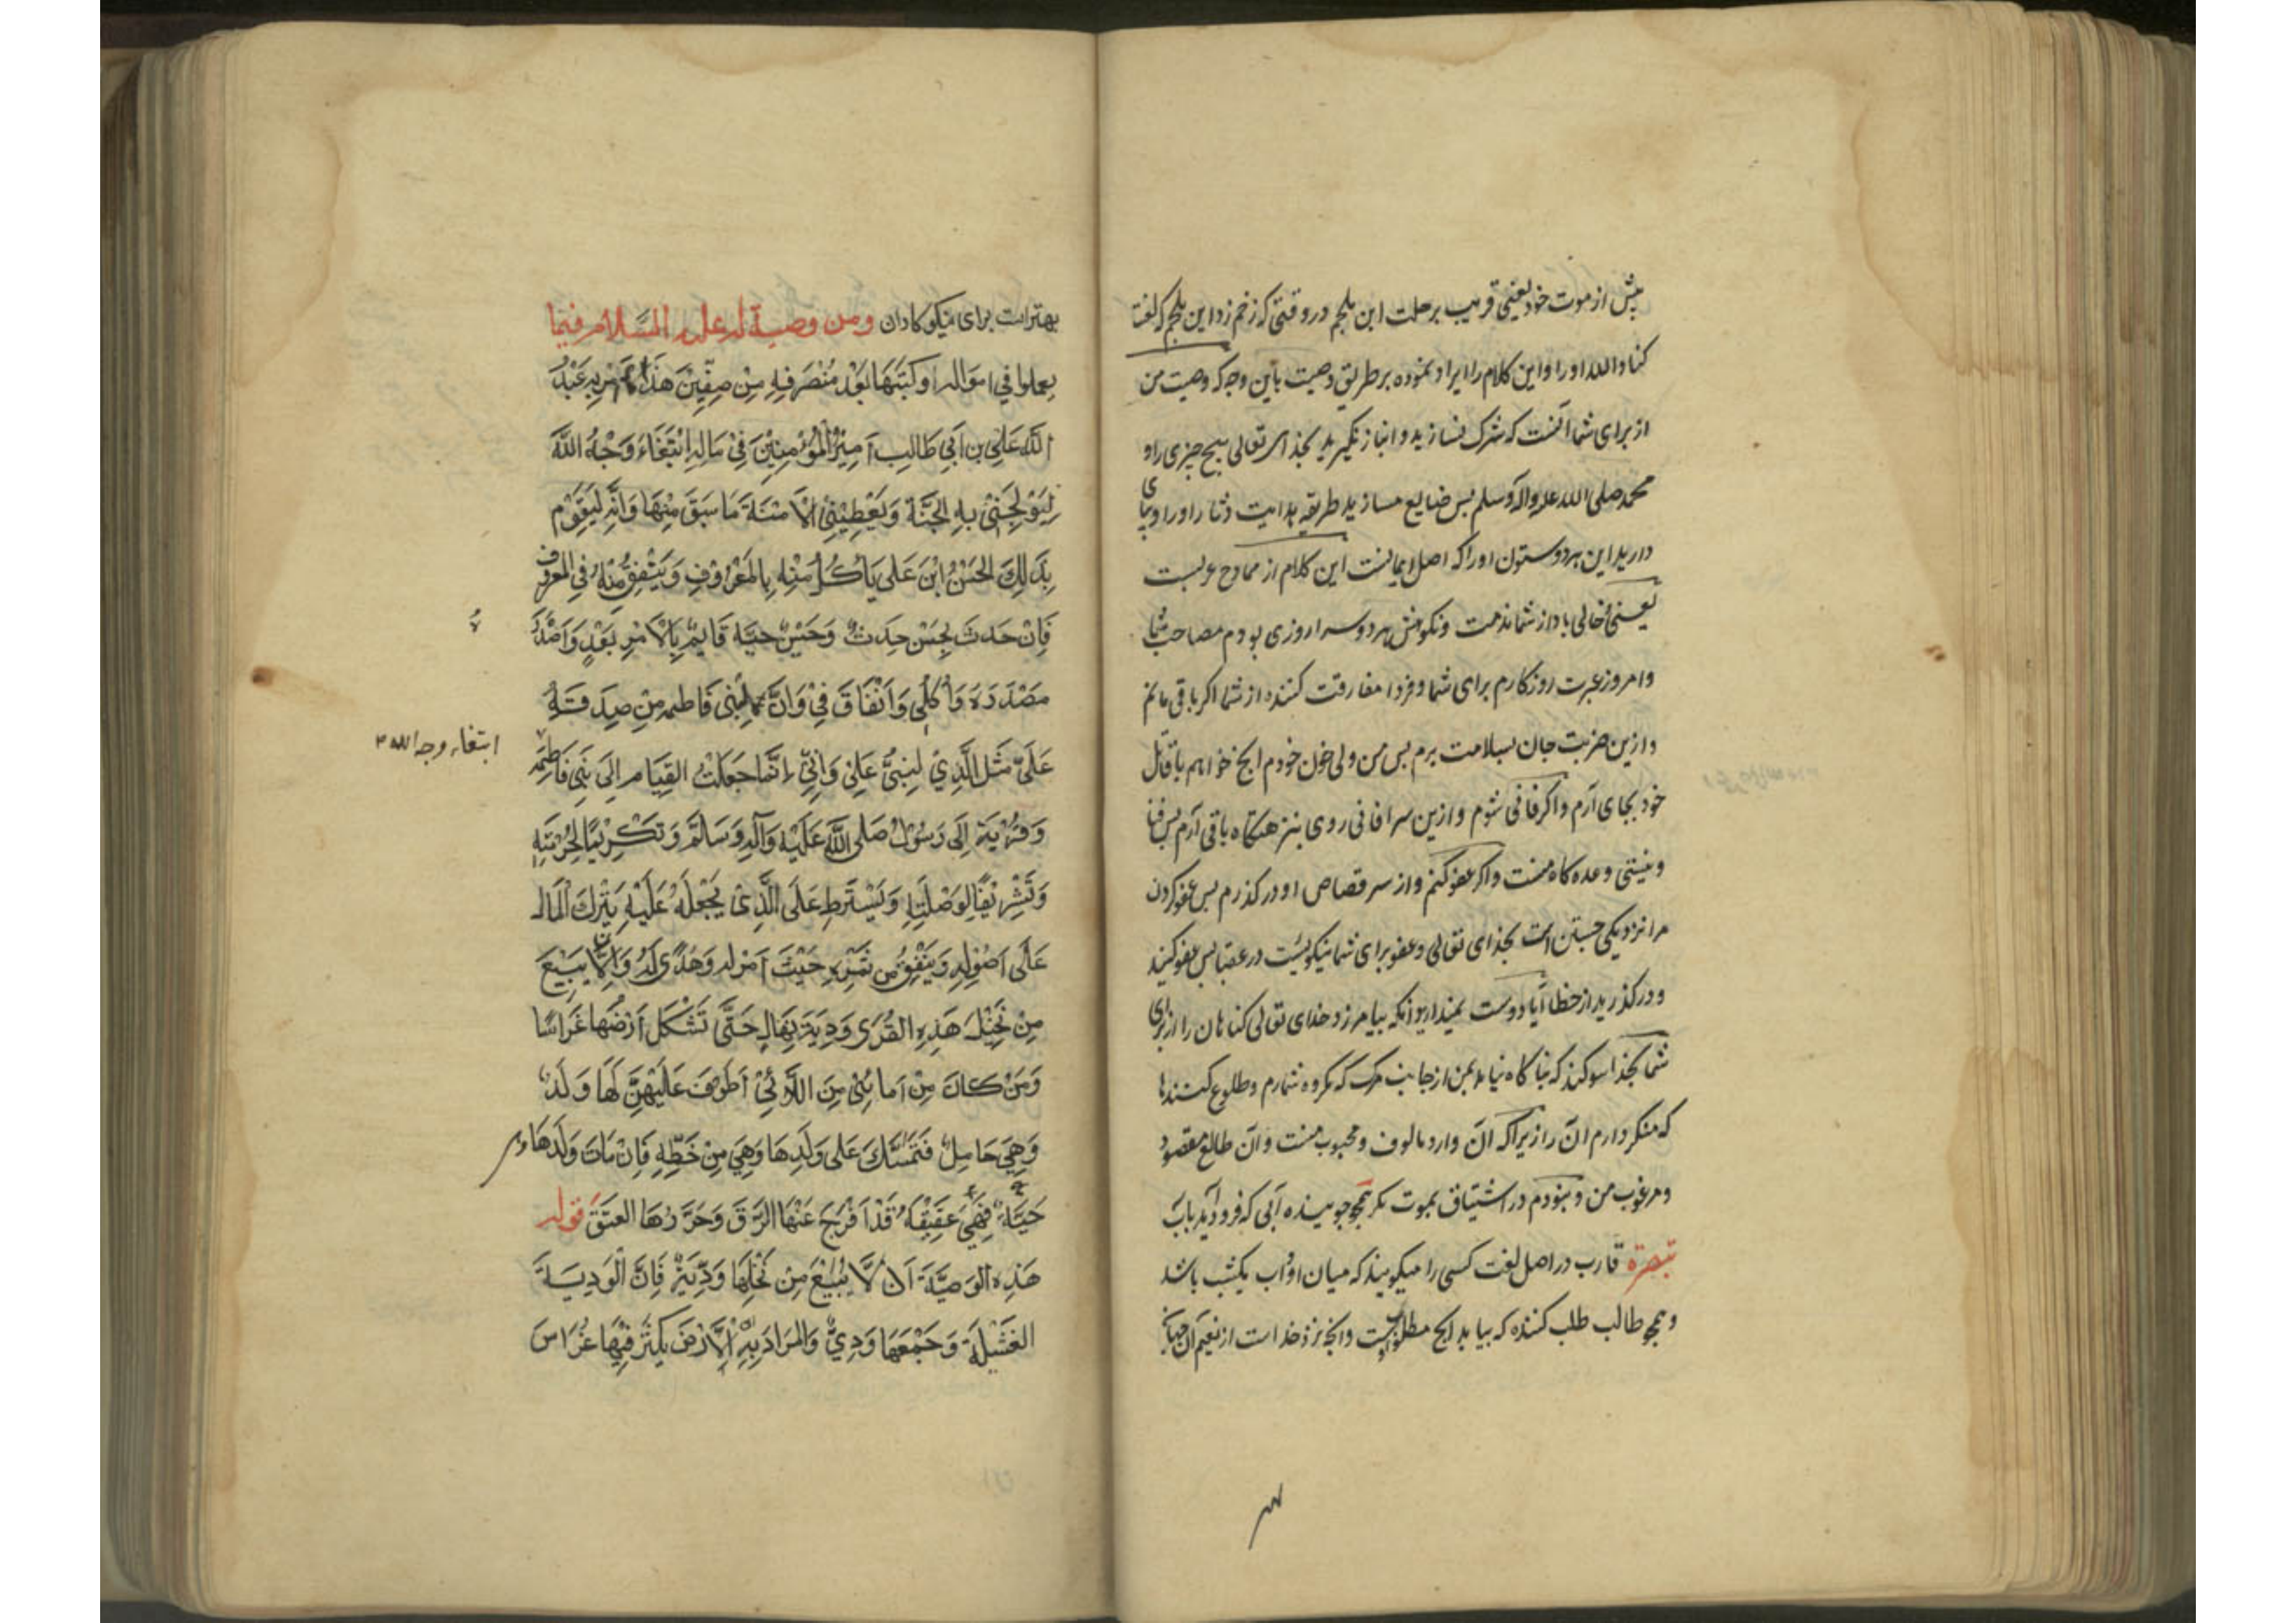 پیش از موت خود یعنی قریب برحلت ابن ملجم در وقتی که زخم زد ابن ملجم که لفت
کنا والله او را و این کلام را ایراد نموده بر طریق وصیت باین وجه که وصیت من
از برای شما آنست که شرک نسازید و انباز نگیرید بخدای تعالی هیچ چیزی را و
محمد صلی الله علیه وآله وسلم پس ضایع مسازید طریقه هدایت و را و برپای
دارید این هر دو ستون او را که اصل ایمانست این کلام از ممادح عربست
یعنی خالی باد از شما مذمت و نکوهش هر دو سرا روزی بودم مصاحب شما
وامروز عبرت روزکارم برای شما و فردا مفارقت کننده از شما اکر باقی مانم
وازین ضربت جان بسلامت برم پس من ولی خون خودم انچ خواهم با قاتل
خود بجای آرم و اکر فانی شوم وازین سرا فانی روی بمنزهتکاه باقی آرم پس فنا
ونیستی وعده کاه منست واکر عفو کنم واز سر قصاص او درکذرم پس عفو کردن
مرا نزدیکی جستن است بخدای تعالی وعفو برای شما نیکوئیست در عقبا پس عفو کنید
ودر کذرید از خطا آیا دوست نمیدارید انکه بیامرزد خدای تعالی کناهان را از برای
شما بخدا سوکند که ناکاه نیامد بمن از جانب مرک که مکروه شمارم وطلوع کننده
که منکر دارم ان را زیراکه ان وارد مالوف و محبوب منست و ان طالع مقصود
ومرغوب من ونبودم در اشتیاق بموت مکر همچو جوینده آبی که فرود آید بآب
تبصرة قارب در اصل لغت کسی را میکویند که میان او و آب یکشب باشد
وهمچو طالب طلب کننده که بیابد انچ مطلوب اوست وانچه نزد خداست از نعیم آن جهان
بهتر است برای نیکوکاران ومن وصیة له علیه السلام فیما
یعملوا فی امواله او کتبها بعد منصرفه من صفین هذا ما امر به عبد
الله علی بن ابی طالب امیر المؤمنین فی ماله ابتغاء وجه الله
لیولجنی به الجنة ویعطینی الامنة ما سبق منها وانه لیقوم
بذلك الحسن ابن علی یأکل منه بالمعروف وینفق منه فی المعروف
فان حدث بحسن حدث وحسین حیة قایم بالامر بعد واصد
مصدره وانفاق فی وان لبنی فاطمه من صدقة
علی مثل الذی لبنی علی وانی انما جعلت القیام الی بنی فاطمه
ابتغاء وجه الله
وقربة الی رسول صلی الله علیه وآله وسلم وتکریما لحرمته
وتشریفا لوصلته ویشترط علی الذی یجعله علیه یترك المال
علی اصوله وینفق من ثمره حیث امر له وهدی له وان لا یبیع
من نخیل هذه القری ودیة بقال حتی تشکل ارضها غراسا
ومن کان من امائی من اللائی اطوف علیهن لها ولد
وهی حامل فتمسك علی ولدها وهی من خطه فان مات ولدها
حیة فهی عقیقة قد افرج عنها الرق وحررها العتق قوله
هذه الوصیة ان لا یبیع من نخلها ودیة فان الودیة
الفشیلة وجمعها ودی والمراد به الارض یکثر فیها غراس